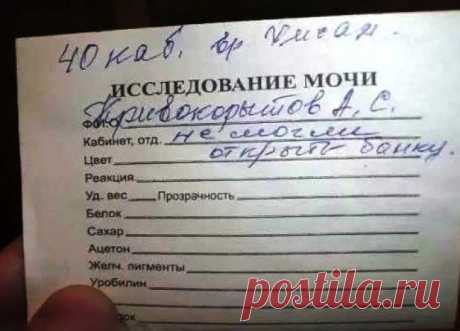 40 каб. вр Писан.
ИССЛЕДОВАНИЕ МОЧИ
Ф.И.О. Кривокорытов А. С.
Кабинет, отд. не могли
Цвет открыть банку.
Реакция
Уд. вес Прозрачность
Белок
Сахар
Ацетон
Желч. пигменты
Уробилин
postila.ru